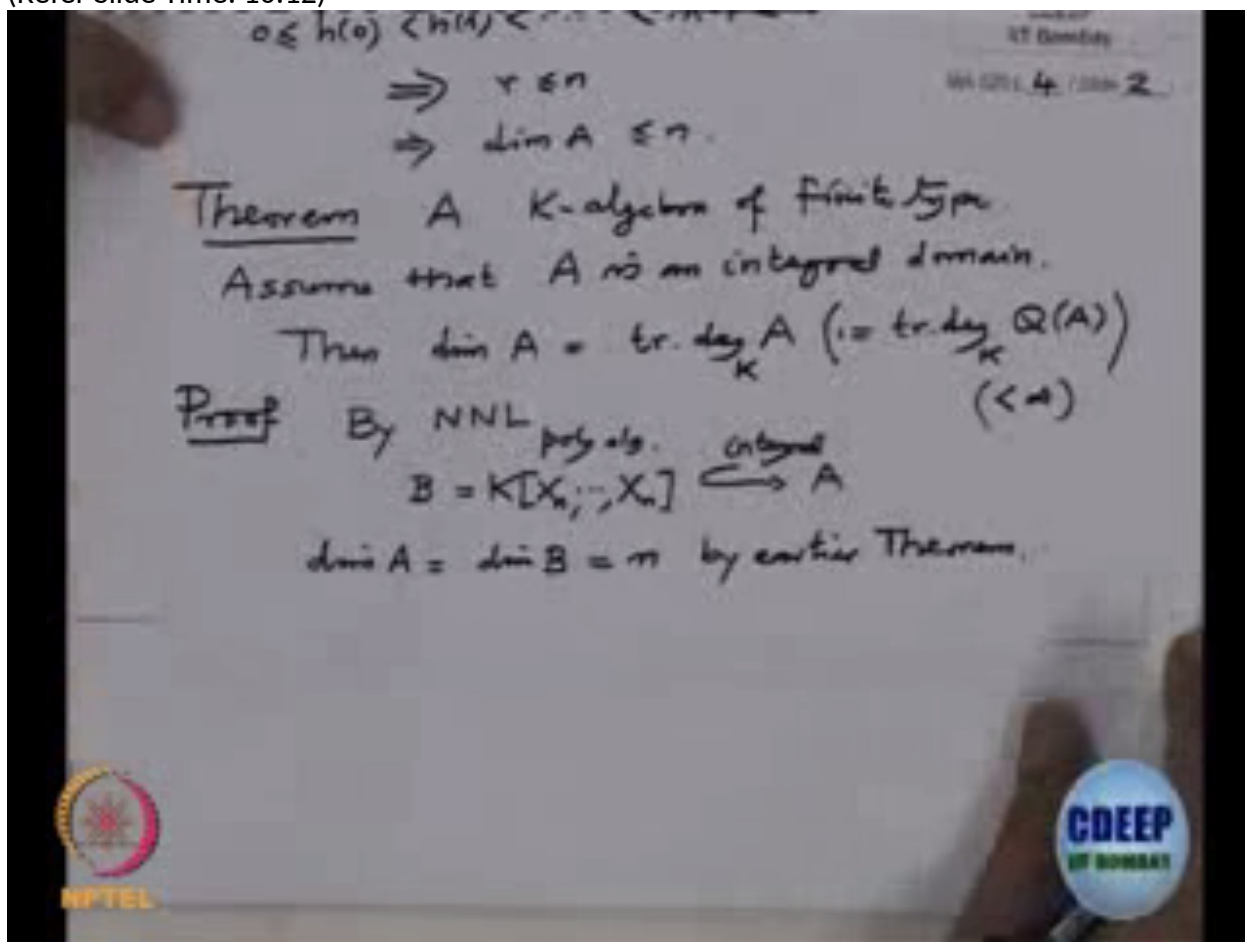 0 ≤ h(0) < h(1) <
IIT Bombay
4 / 2
⇒ r ≤ n
⇒ dim A ≤ n.
Theorem A K-algebra of finite type
Assume that A is an integral domain.
Then dim A = tr.deg_K A (:= tr.deg_K Q(A))
(<∞)
Proof By NNL
poly alg. integral
B = K[X_n, ..., X_n] ↪ A
dim A = dim B = n by earlier Theorem.
CDEEP
IIT BOMBAY
NPTEL